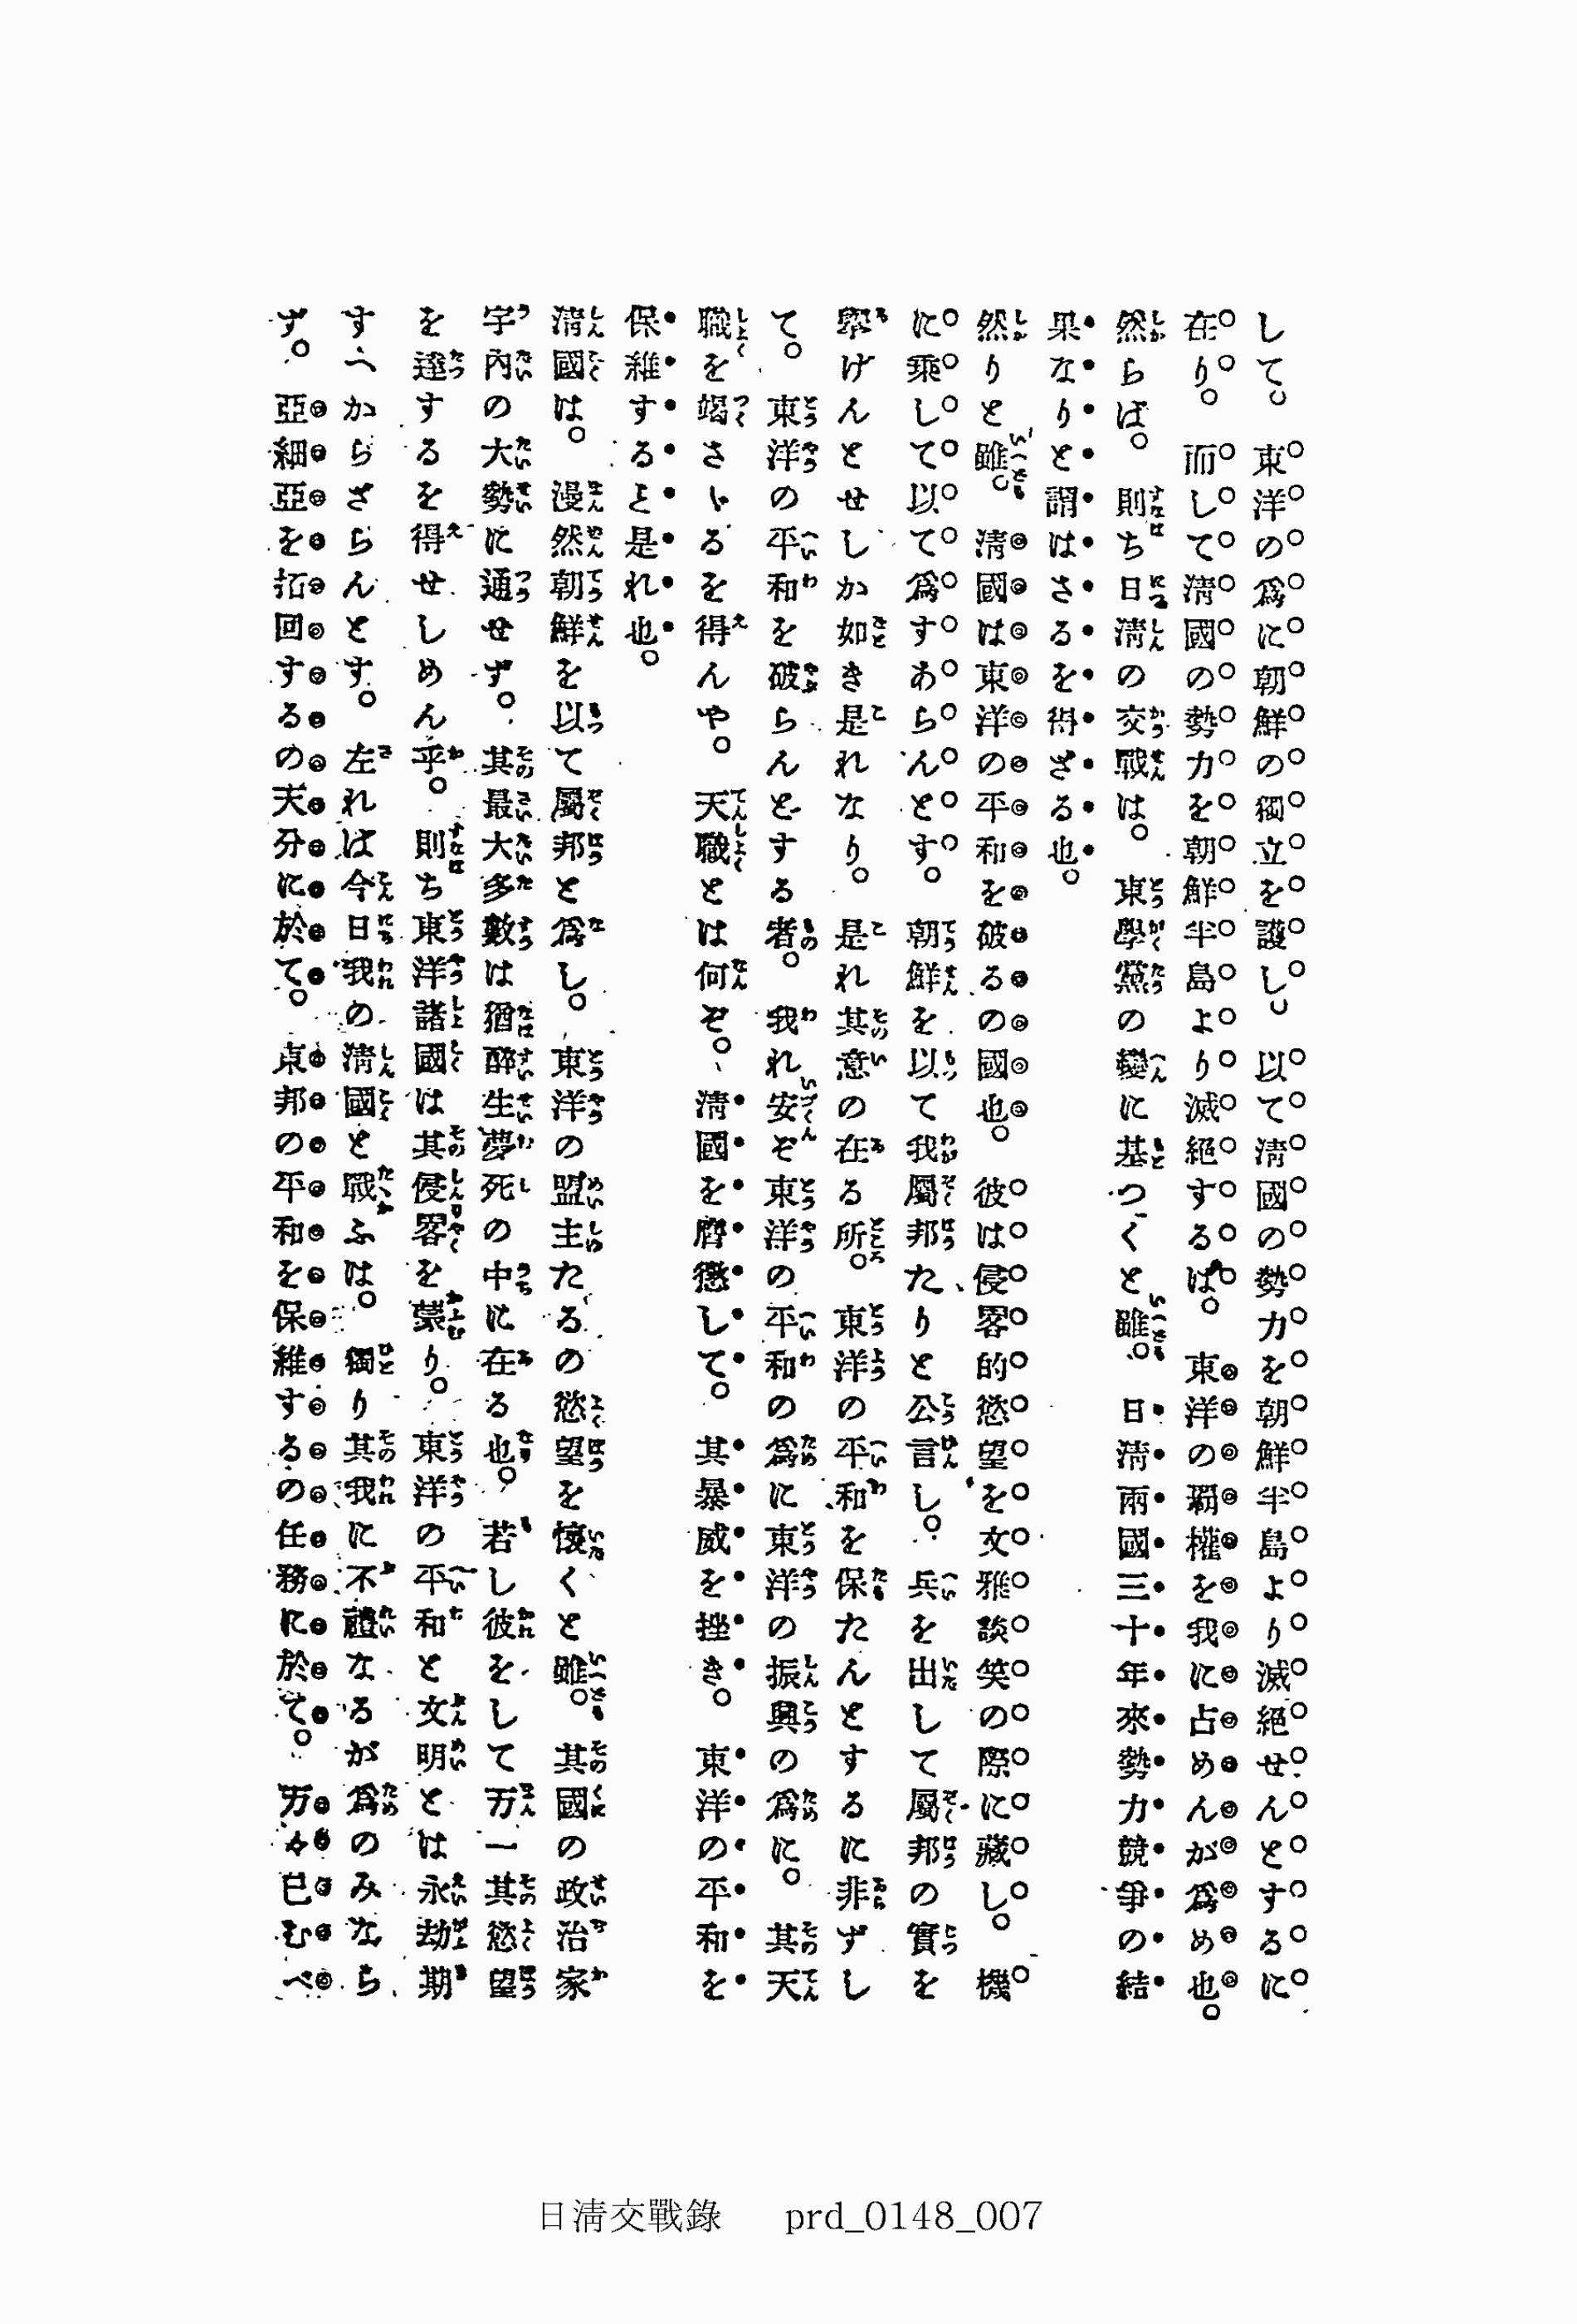 して。東洋の爲に朝鮮の獨立を護し。以て淸國の勢力を朝鮮半島より滅絕せんとするに
在り。而して淸國の勢力を朝鮮半島より滅絕するは。東洋の覇權を我に占めんが爲め也。
然らば。則ち日淸の交戰は。東學黨の變に基つくと雖。日淸兩國三十年來勢力競爭の結
果なりと謂はさるを得ざる也。
然りと雖。淸國は東洋の平和を破るの國也。彼は侵畧的慾望を文雅談笑の際に藏し。機
に乘して以て爲すあらんとす。朝鮮を以て我屬邦たりと公言し。兵を出して屬邦の實を
擧げんとせしか如き是れなり。是れ其意の在る所。東洋の平和を保たんとするに非ずし
て。東洋の平和を破らんとする者。我れ安ぞ東洋の平和の爲に東洋の振興の爲に。其天
職を竭さゝるを得んや。天職とは何ぞ。淸國を膺懲して。其暴威を挫き。東洋の平和を
保維すると是れ也。
淸國は。漫然朝鮮を以て屬邦と爲し。東洋の盟主たるの慾望を懷くと雖。其國の政治家
宇內の大勢に通せず。其最大多數は猶醉生夢死の中に在る也。若し彼をして万一其慾望
を達するを得せしめん乎。則ち東洋諸國は其侵畧を蒙り。東洋の平和と文明とは永劫期
すへからざらんとす。左れば今日我の淸國と戰ふは。獨り其我に不禮なるが爲のみなら
ず。亞細亞を拓回するの天分に於て。東邦の平和を保維するの任務に於て。万々已むべ
日淸交戰錄 prd_0148_007